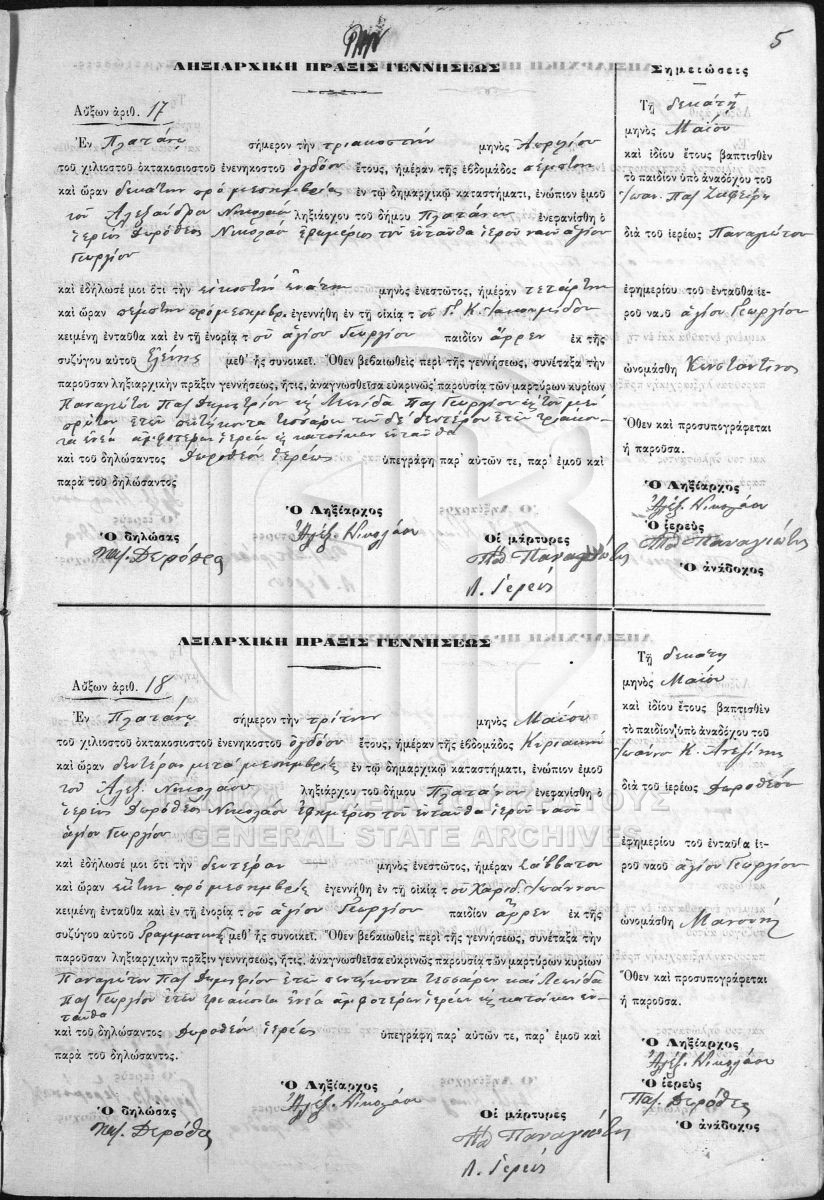 5
ΛΗΞΙΑΡΧΙΚΗ ΠΡΑΞΙΣ ΓΕΝΝΗΣΕΩΣ
Αὔξων ἀριθ. 17
Ἐν Πλατάνῳ σήμερον τὴν τριακοστὴν μηνὸς Ἀπριλίου
τοῦ χιλιοστοῦ ὀκτακοσιοστοῦ ἐνενηκοστοῦ ὀγδόου ἔτους, ἡμέραν τῆς ἑβδομάδος πέμπτην
καὶ ὥραν δεκάτην πρὸ μεσημβρίας ἐν τῷ δημαρχικῷ καταστήματι, ἐνώπιον ἐμοῦ
τοῦ Ἀλεξάνδρου Νικολάου ληξιάρχου τοῦ δήμου Πλατάνου ἐνεφανίσθη ὁ
ἱερεὺς Δωρόθεος Νικολάου ἐφημέριος τοῦ ἐνταῦθα ἱεροῦ ναοῦ ἁγίου
Γεωργίου
καὶ ἐδήλωσέ μοι ὅτι τὴν εἰκοστὴν ἐνάτην μηνὸς ἐνεστῶτος, ἡμέραν τετάρτην
καὶ ὥραν πέμπτην πρὸ μεσημβρ. ἐγεννήθη ἐν τῇ οἰκίᾳ τοῦ Γ. Κ.
κειμένῃ ἐνταῦθα καὶ ἐν τῇ ἐνορίᾳ τοῦ ἁγίου Γεωργίου παιδίον ἄρρεν ἐκ τῆς
συζύγου αὐτοῦ Ἑλένης μεθ᾽ ἧς συνοικεῖ. Ὅθεν βεβαιωθεὶς περὶ τῆς γεννήσεως, συνέταξα τὴν
παροῦσαν ληξιαρχικὴν πρᾶξιν γεννήσεως, ἥτις, ἀναγνωσθεῖσα εὐκρινῶς παρουσίᾳ τῶν μαρτύρων κυρίων
Παναγιώτου Παπ Δημητρίου κ Λεωνίδα Παπ Γεωργίου τοῦ μὲν
πρώτου ἐτῶν πεντήκοντα τεσσάρων τοῦ δὲ δευτέρου ἐτῶν τριάκον-
τα ἐννέα ἀμφοτέρων ἱερέων κ κατοίκων ἐνταῦθα
καὶ τοῦ δηλώσαντος Δωροθέου ἱερέως ὑπεγράφη παρ᾽ αὐτῶν τε, παρ᾽ ἐμοῦ καὶ
παρὰ τοῦ δηλώσαντος
Ὁ δηλώσας
Ὁ Ληξίαρχος
Ἀλέξ. Νικολάου
Οἱ μάρτυρες
Παπ Παναγιώτης
Λ. Ἱερεύς
Σημειώσεις
Τῇ δεκάτῃ
μηνὸς Μαΐου
καὶ ἰδίου ἔτους βαπτισθὲν
τὸ παιδίον ὑπὸ ἀναδόχου τοῦ
Ἰωάν. Παπ Ζαφείρη
διὰ τοῦ ἱερέως Παναγιώτου
ἐφημερίου τοῦ ἐνταῦθα ἱε-
ροῦ ναοῦ ἁγίου Γεωργίου
ὠνομάσθη Κωνσταντῖνος
Ὅθεν καὶ προσυπογράφεται
ἡ παροῦσα.
Ὁ Ληξίαρχος
Ἀλέξ. Νικολάου
Ὁ ἱερεὺς
Παπ Παναγιώτης
Ὁ ἀνάδοχος
ΛΞΙΑΡΧΙΚΗ ΠΡΑΞΙΣ ΓΕΝΝΗΣΕΩΣ
Αὔξων ἀριθ. 18
Ἐν Πλατάνῳ σήμερον τὴν τρίτην μηνὸς Μαΐου
τοῦ χιλιοστοῦ ὀκτακοσιοστοῦ ἐνενηκοστοῦ ὀγδόου ἔτους, ἡμέραν τῆς ἑβδομάδος Κυριακὴν
καὶ ὥραν δευτέραν μετὰ μεσημβρίας ἐν τῷ δημαρχικῷ καταστήματι, ἐνώπιον ἐμοῦ
τοῦ Ἀλεξ. Νικολάου ληξιάρχου τοῦ δήμου Πλατάνου ἐνεφανίσθη ὁ
ἱερεὺς Δωρόθεος Νικολάου ἐφημέριος τοῦ ἐνταῦθα ἱεροῦ ναοῦ
ἁγίου Γεωργίου
καὶ ἐδήλωσέ μοι ὅτι τὴν δευτέραν μηνὸς ἐνεστῶτος, ἡμέραν Σάββατον
καὶ ὥραν ἕκτην πρὸ μεσημβρίας ἐγεννήθη ἐν τῇ οἰκίᾳ τοῦ Χαριδ. Ἰωάννου
κειμένῃ ἐνταῦθα καὶ ἐν τῇ ἐνορίᾳ τοῦ ἁγίου Γεωργίου παιδίον ἄρρεν ἐκ τῆς
συζύγου αὐτοῦ Γραμματικῆς μεθ᾽ ἧς συνοικεῖ. Ὅθεν βεβαιωθεὶς περὶ τῆς γεννήσεως, συνέταξα τὴν
παροῦσαν ληξιαρχικὴν πρᾶξιν γεννήσεως, ἥτις, ἀναγνωσθεῖσα εὐκρινῶς παρουσίᾳ τῶν μαρτύρων κυρίων
Παναγιώτου Παπ Δημητρίου ἐτῶν πεντήκοντα τεσσάρων καὶ Λεωνίδα
Παπ Γεωργίου ἐτῶν τριάκοντα ἐννέα ἀμφοτέρων ἱερέων κ κατοίκων ἐν-
ταῦθα
καὶ τοῦ δηλώσαντος Δωροθέου ἱερέως ὑπεγράφη παρ᾽ αὐτῶν τε, παρ᾽ ἐμοῦ καὶ
παρὰ τοῦ δηλώσαντος.
Ὁ δηλώσας
Ὁ Ληξίαρχος
Ἀλέξ. Νικολάου
Οἱ μάρτυρες
Παπ Παναγιώτης
Λ. Ἱερεύς
Τῇ δεκάτῃ
μηνὸς Μαΐου
καὶ ἰδίου ἔτους βαπτισθὲν
τὸ παιδίον ὑπὸ ἀναδόχου τοῦ
διὰ τοῦ ἱερέως Δωροθέου
ἐφημερίου τοῦ ἐνταῦθα ἱε-
ροῦ ναοῦ ἁγίου Γεωργίου
ὠνομάσθη
Ὅθεν καὶ προσυπογράφεται
ἡ παροῦσα.
Ὁ Ληξίαρχος
Ἀλέξ. Νικολάου
Ὁ ἱερεὺς
Ὁ ἀνάδοχος
GENERAL STATE ARCHIVES